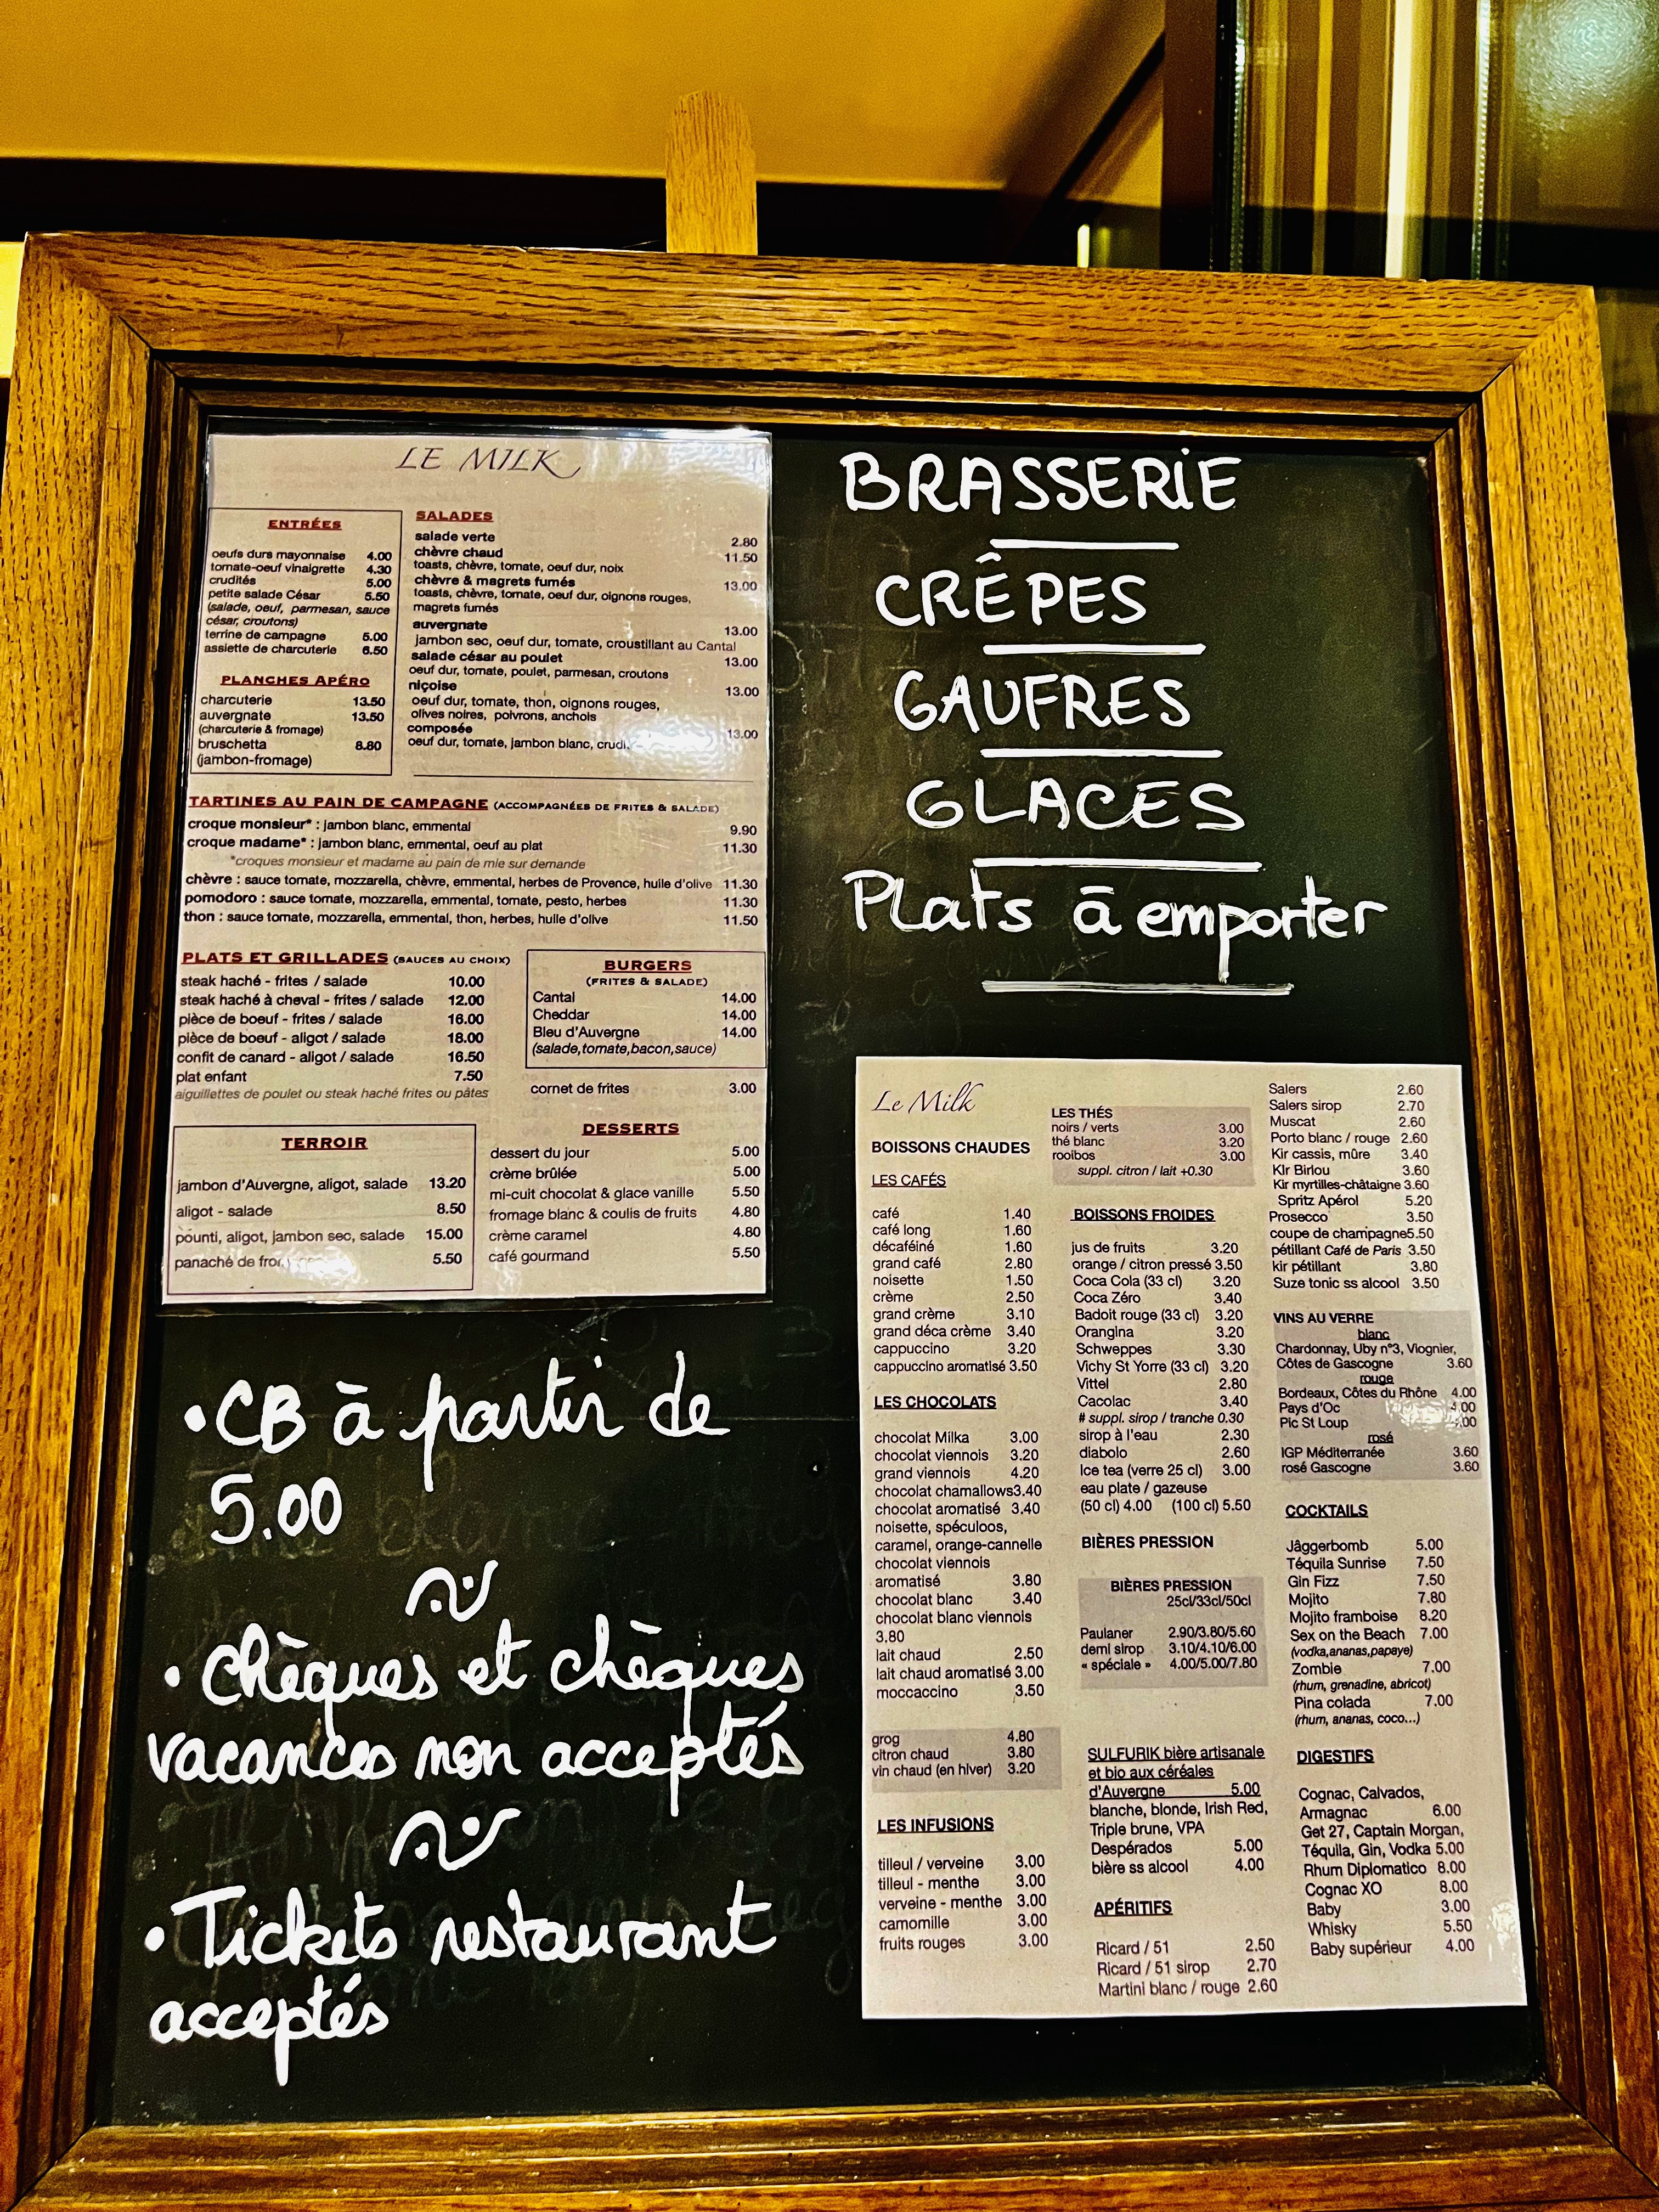 LE MILK
ENTRÉES
oeufs durs mayonnaise 4.00
tomate-oeuf vinaigrette 4.30
crudités 5.00
petite salade César 5.50
(salade, oeuf, parmesan, sauce
césar, croutons)
terrine de campagne 5.00
assiette de charcuterie 6.50
PLANCHES APÉRO
charcuterie 13.50
auvergnate 13.50
(charcuterie & fromage)
bruschetta 8.80
(jambon-fromage)
SALADES
salade verte 2.80
chèvre chaud 11.50
toasts, chèvre, tomate, oeuf dur, noix
chèvre & magrets fumés 13.00
toasts, chèvre, tomate, oeuf dur, oignons rouges,
magrets fumés
auvergnate 13.00
jambon sec, oeuf dur, tomate, croustillant au Cantal
salade césar au poulet 13.00
oeuf dur, tomate, poulet, parmesan, croutons
niçoise 13.00
oeuf dur, tomate, thon, oignons rouges,
olives noires, poivrons, anchois
composée 13.00
oeuf dur, tomate, jambon blanc,
TARTINES AU PAIN DE CAMPAGNE (ACCOMPAGNÉES DE FRITES & SALADE)
croque monsieur* : jambon blanc, emmental 9.90
croque madame* : jambon blanc, emmental, oeuf au plat 11.30
*croques monsieur et madame au pain de mie sur demande
chèvre : sauce tomate, mozzarella, chèvre, emmental, herbes de Provence, huile d'olive 11.30
pomodoro : sauce tomate, mozzarella, emmental, tomate, pesto, herbes 11.30
thon : sauce tomate, mozzarella, emmental, thon, herbes, huile d'olive 11.50
PLATS ET GRILLADES (SAUCES AU CHOIX)
steak haché - frites / salade 10.00
steak haché à cheval - frites / salade 12.00
pièce de boeuf - frites / salade 16.00
pièce de boeuf - aligot / salade 18.00
confit de canard - aligot / salade 16.50
plat enfant 7.50
aiguillettes de poulet ou steak haché frites ou pâtes
BURGERS
(FRITES & SALADE)
Cantal 14.00
Cheddar 14.00
Bleu d'Auvergne 14.00
(salade,tomate,bacon,sauce)
cornet de frites 3.00
TERROIR
jambon d'Auvergne, aligot, salade 13.20
aligot - salade 8.50
pounti, aligot, jambon sec, salade 15.00
panaché de 5.50
DESSERTS
dessert du jour 5.00
crème brûlée 5.00
mi-cuit chocolat & glace vanille 5.50
fromage blanc & coulis de fruits 4.80
crème caramel 4.80
café gourmand 5.50
• CB à partir de
5.00
• Chèques et chèques
vacances non acceptés
• Tickets restaurant
acceptés
BRASSERiE
CRÊPES
GAUFRES
GLACES
Plats à emporter
Le Milk
BOISSONS CHAUDES
LES CAFÉS
café 1.40
café long 1.60
décaféiné 1.60
grand café 2.80
noisette 1.50
crème 2.50
grand crème 3.10
grand déca crème 3.40
cappuccino 3.20
cappuccino aromatisé 3.50
LES CHOCOLATS
chocolat Milka 3.00
chocolat viennois 3.20
grand viennois 4.20
chocolat chamallows3.40
chocolat aromatisé 3.40
noisette, spéculoos,
caramel, orange-cannelle
chocolat viennois
aromatisé 3.80
chocolat blanc 3.40
chocolat blanc viennois
3.80
lait chaud 2.50
lait chaud aromatisé 3.00
moccaccino 3.50
grog 4.80
citron chaud 3.80
vin chaud (en hiver) 3.20
LES INFUSIONS
tilleul / verveine 3.00
tilleul - menthe 3.00
verveine - menthe 3.00
camomille 3.00
fruits rouges 3.00
LES THÉS
noirs / verts 3.00
thé blanc 3.20
rooibos 3.00
suppl. citron / lait +0.30
BOISSONS FROIDES
jus de fruits 3.20
orange / citron pressé 3.50
Coca Cola (33 cl) 3.20
Coca Zéro 3.40
Badoit rouge (33 cl) 3.20
Orangina 3.20
Schweppes 3.30
Vichy St Yorre (33 cl) 3.20
Vittel 2.80
Cacolac 3.40
# suppl. sirop / tranche 0.30
sirop à l'eau 2.30
diabolo 2.60
Ice tea (verre 25 cl) 3.00
eau plate / gazeuse
(50 cl) 4.00 (100 cl) 5.50
BIÈRES PRESSION
BIÈRES PRESSION
25cl/33cl/50cl
Paulaner 2.90/3.80/5.60
demi sirop 3.10/4.10/6.00
« spéciale » 4.00/5.00/7.80
SULFURIK bière artisanale
et bio aux céréales
d'Auvergne 5.00
blanche, blonde, Irish Red,
Triple brune, VPA
Despérados 5.00
bière ss alcool 4.00
APÉRITIFS
Ricard / 51 2.50
Ricard / 51 sirop 2.70
Martini blanc / rouge 2.60
Salers 2.60
Salers sirop 2.70
Muscat 2.60
Porto blanc / rouge 2.60
Kir cassis, mûre 3.40
KIr Birlou 3.60
Kir myrtilles-châtaigne 3.60
Spritz Apérol 5.20
Prosecco 3.50
coupe de champagne5.50
pétillant Café de Paris 3.50
kir pétillant 3.80
Suze tonic ss alcool 3.50
VINS AU VERRE
blanc
Chardonnay, Uby n°3, Viognier,
Côtes de Gascogne 3.60
rouge
Bordeaux, Côtes du Rhône 4.00
Pays d'Oc 4.00
Pic St Loup
rosé
IGP Méditerranée 3.60
rosé Gascogne 3.60
COCKTAILS
Jâggerbomb 5.00
Téquila Sunrise 7.50
Gin Fizz 7.50
Mojito 7.80
Mojito framboise 8.20
Sex on the Beach 7.00
(vodka,ananas,papaye)
Zombie 7.00
(rhum, grenadine, abricot)
Pina colada 7.00
(rhum, ananas, coco...)
DIGESTIFS
Cognac, Calvados,
Armagnac 6.00
Get 27, Captain Morgan,
Téquila, Gin, Vodka 5.00
Rhum Diplomatico 8.00
Cognac XO 8.00
Baby 3.00
Whisky 5.50
Baby supérieur 4.00